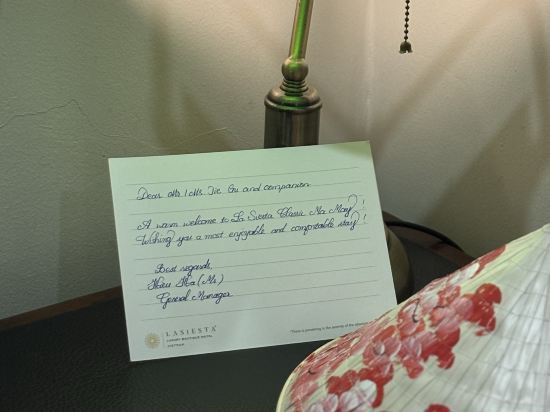 Dear Mr / Ms. Jie Gu and companion.
A warm welcome to La Siesta Classic Ma May !
Wishing you a most enjoyable and comfortable stay !
Best regards,
Ha (Ms)
General Manager
LASIESTA
LUXURY BOUTIQUE HOTEL
VIETNAM
"There is something in the serenity of the